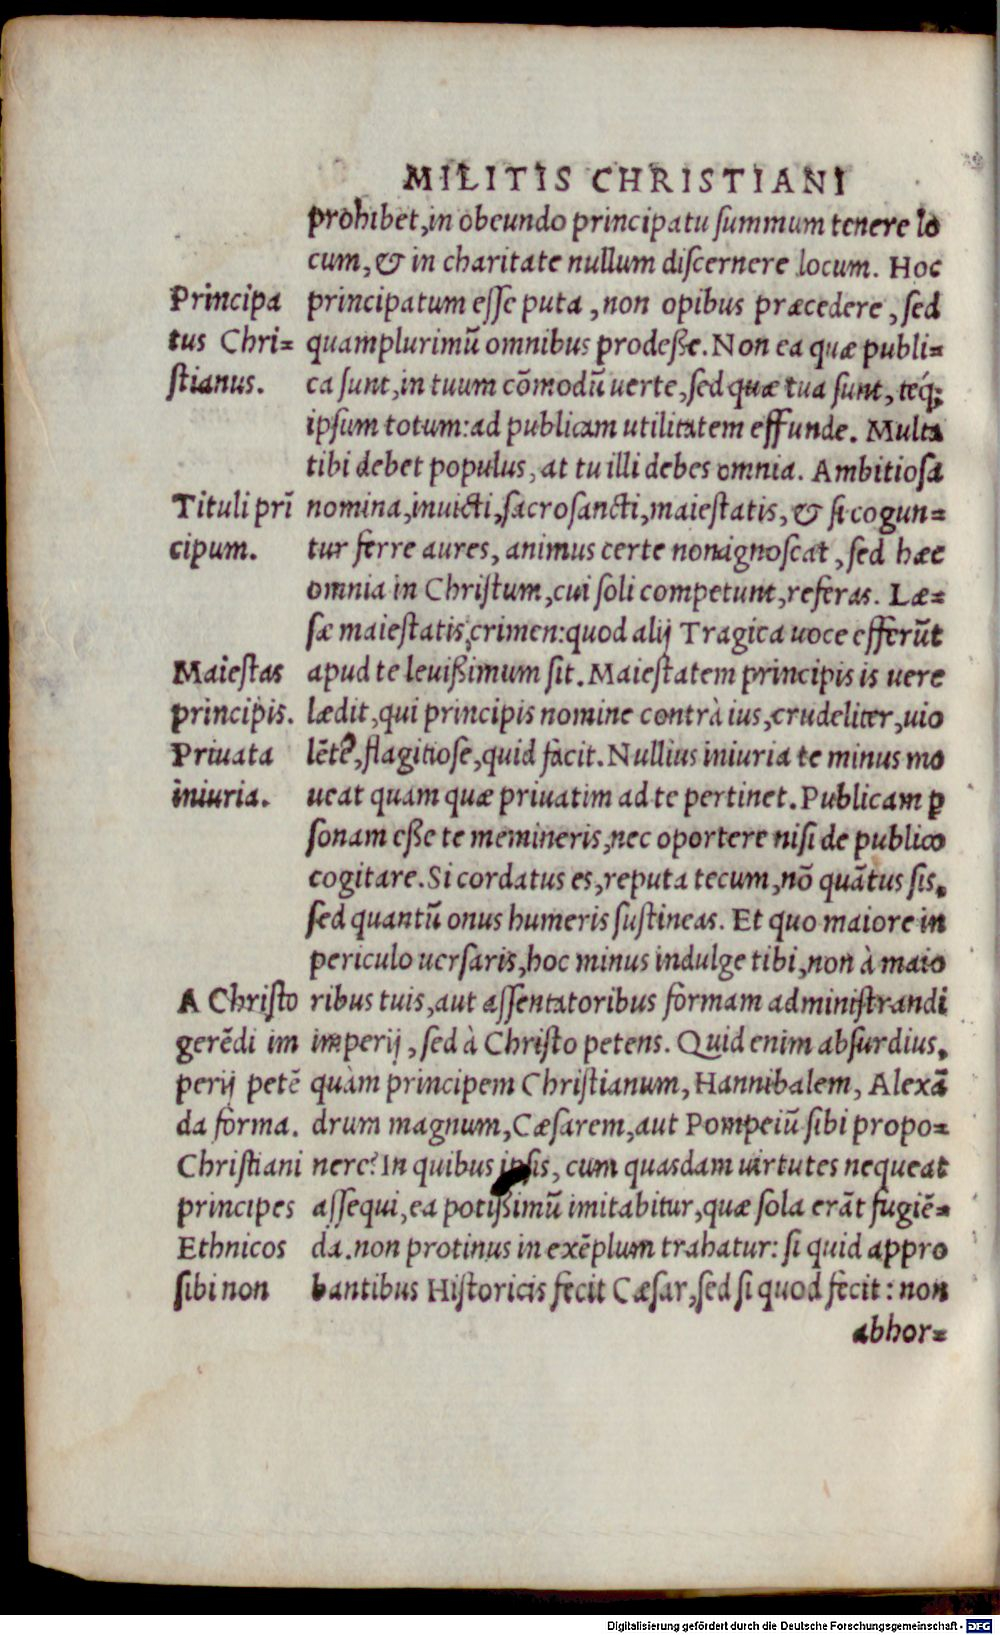 MILITIS CHRISTIANI
prohibet, in obeundo principatu summum tenere lo
cum, & in charitate nullum discernere locum. Hoc
principatum esse puta, non opibus præcedere, sed
quamplurimũ omnibus prodeße. Non ea quæ publi=
ca sunt, in tuum cõmodũ uerte, sed quæ tua sunt, teq́;
ipsum totum: ad publicam utilitatem effunde. Multa
tibi debet populus, at tu illi debes omnia. Ambitiosa
nomina, inuicti, sacrosancti, maiestatis, & si cogun=
tur ferre aures, animus certe non agnoscat, sed hæc
omnia in Christum, cui soli competunt, referas. Læ=
sæ maiestatis, crimen: quod alij Tragica uoce efferũt
apud te leuißimum sit. Maiestatem principis is uere
lædit, qui principis nomine contrà ius, crudeliter, uio
lẽte, flagitiose, quid facit. Nullius iniuria te minus mo
ueat quam quæ priuatim ad te pertinet. Publicam ꝑ
sonam eße te memineris, nec oportere nisi de publico
cogitare. Si cordatus es, reputa tecum, nõ quãtus sis,
sed quantũ onus humeris sustineas. Et quo maiore in
periculo uersaris, hoc minus indulge tibi, non à maio
ribus tuis, aut assentatoribus formam administrandi
imperij, sed à Christo petens. Quid enim absurdius,
quàm principem Christianum, Hannibalem, Alexã
drum magnum, Cæsarem, aut Pompeiũ sibi propo=
nere? In quibus ipsis, cum quasdam uirtutes nequeat
assequi, ea potißimũ imitabitur, quæ sola erãt fugiẽ=
da. non protinus in exẽplum trahatur: si quid appro
bantibus Historicis fecit Cæsar, sed si quod fecit: non
abhor=
Principa
tus Chri=
stianus.
Tituli prĩ
cipum.
Maiestas
principis.
Priuata
iniuria.
A Christo
gerẽdi im
perij petẽ
da forma.
Christiani
principes
Ethnicos
sibi non
Digitalisierung gefördert durch die Deutsche Forschungsgemeinschaft - DFG